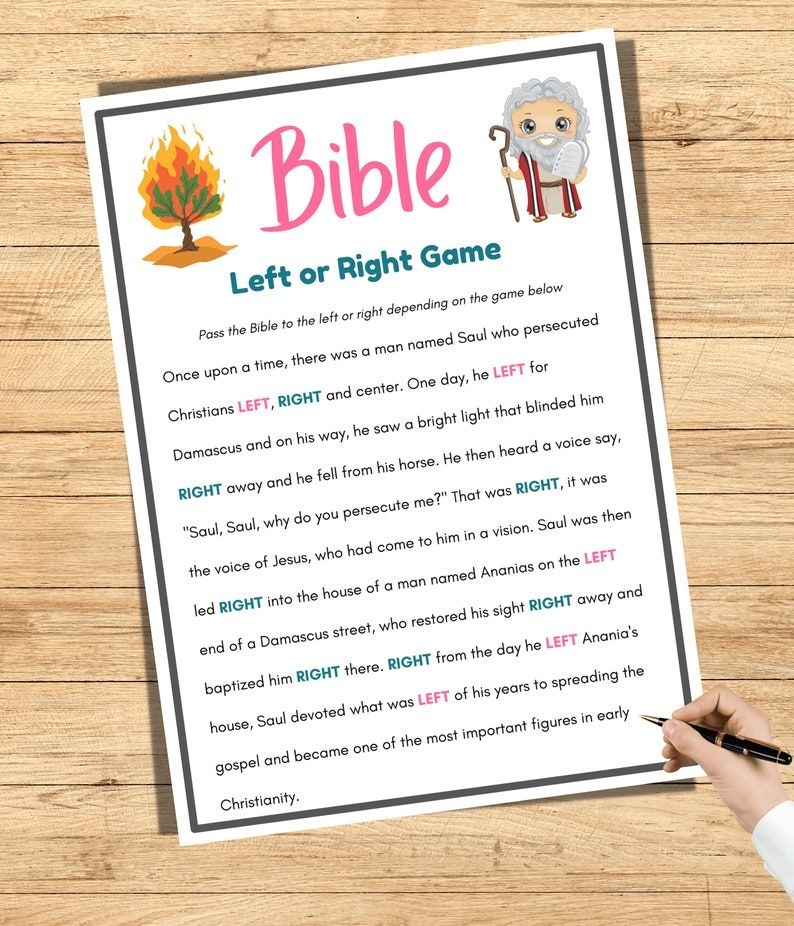 Bible
Left or Right Game
Pass the Bible to the left or right depending on the game below
Once upon a time, there was a man named Saul who persecuted
Christians LEFT, RIGHT and center. One day, he LEFT for
Damascus and on his way, he saw a bright light that blinded him
RIGHT away and he fell from his horse. He then heard a voice say,
"Saul, Saul, why do you persecute me?" That was RIGHT, it was
the voice of Jesus, who had come to him in a vision. Saul was then
led RIGHT into the house of a man named Ananias on the LEFT
end of a Damascus street, who restored his sight RIGHT away and
baptized him RIGHT there. RIGHT from the day he LEFT Anania's
house, Saul devoted what was LEFT of his years to spreading the
gospel and became one of the most important figures in early
Christianity.